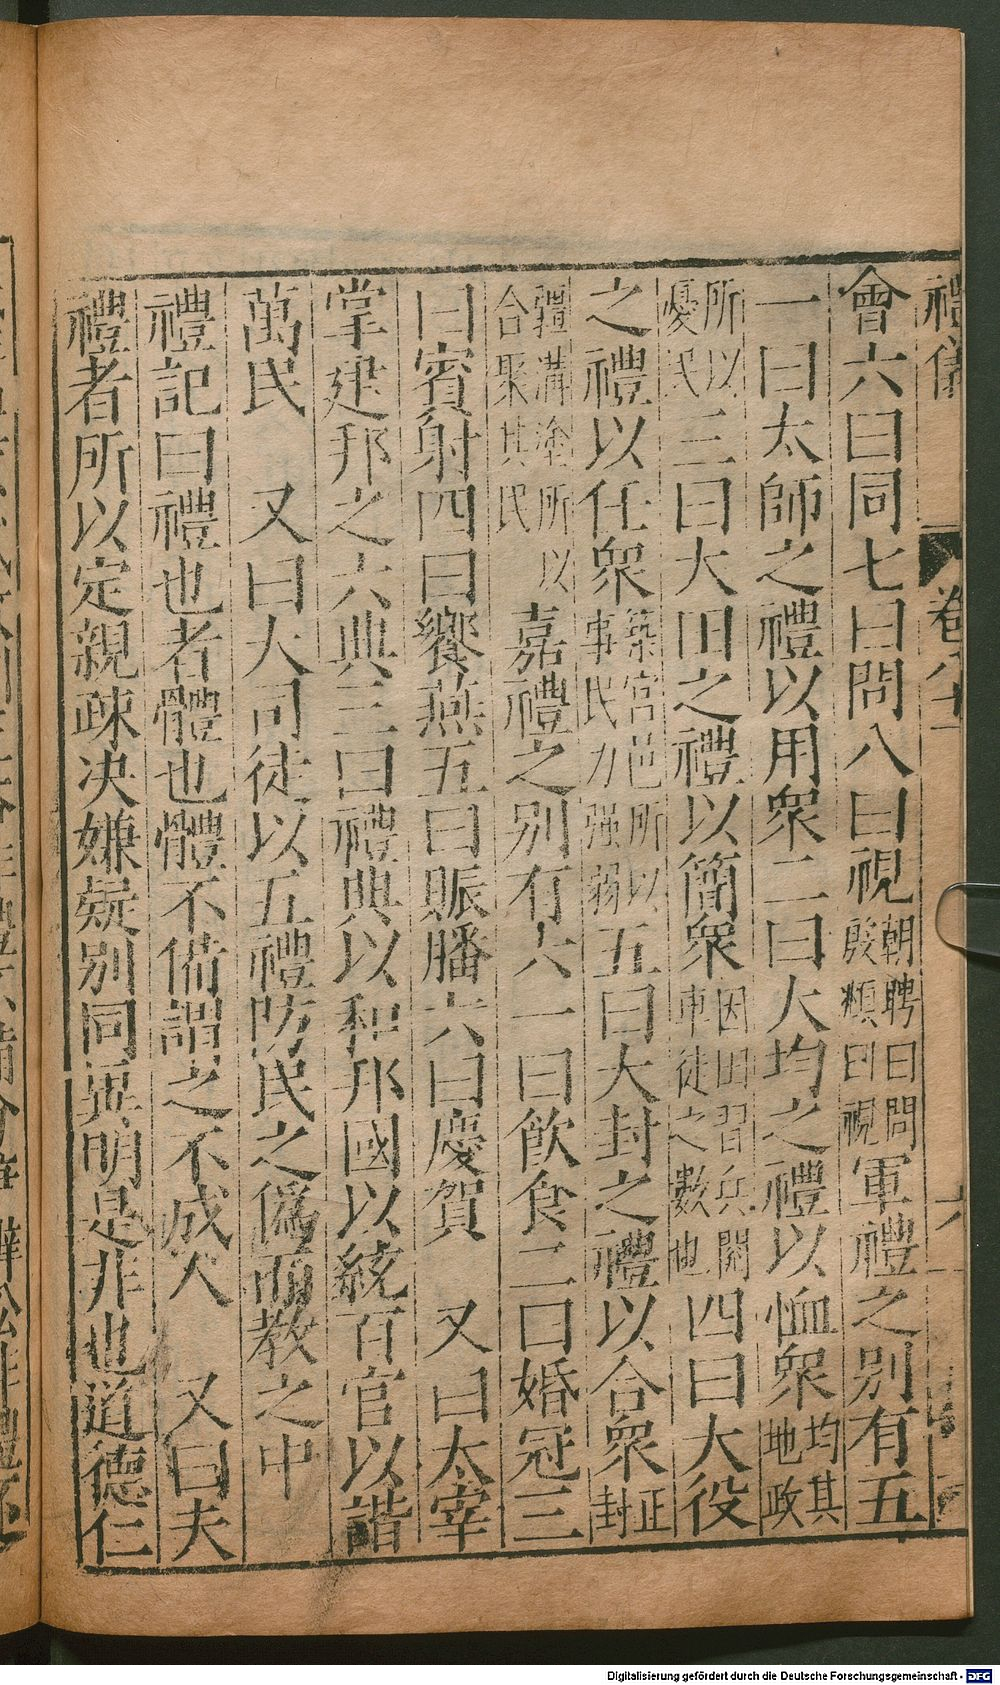 禮儀 卷八十 六
會六曰同七曰問八曰視朝聘曰問殷頫曰視軍禮之別有五
一曰太師之禮以用衆二曰大均之禮以恤衆均其地政
所以憂民三曰大田之禮以簡衆因田習兵閱車徒之數也四曰大役
之禮以任衆築宮邑所以事民力强弱五曰大封之禮以合衆正封
疆溝塗所以合聚其民嘉禮之別有六一曰飲食二曰婚冠三
曰賓射四曰饗燕五曰賑膰六曰慶賀 又曰太宰
掌建邦之六典三曰禮典以和邦國以統百官以諧
萬民 又曰大司徒以五禮防民之僞而教之中
禮記曰禮也者體也體不備謂之不成人 又曰夫
禮者所以定親疎決嫌疑別同異明是非也道德仁
Digitalisierung gefördert durch die Deutsche Forschungsgemeinschaft - DFG